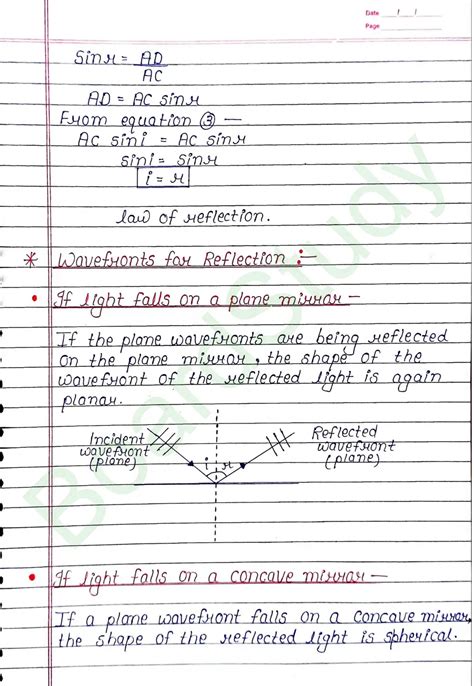 Date / /
Page
Sinr = AD
AC
AD = AC sinr
From equation ③ —
AC sini = AC sinr
sini = sinr
i = r
law of reflection.
* Wavefronts for Reflection :-
• If light falls on a plane mirror —
If the plane wavefronts are being reflected
on the plane mirror, the shape of the
wavefront of the reflected light is again
planar.
Incident
wavefront
(plane)
i r
Reflected
wavefront
(plane)
• If light falls on a concave mirror —
If a plane wavefront falls on a concave mirror,
the shape of the reflected light is spherical.
BoardStudy